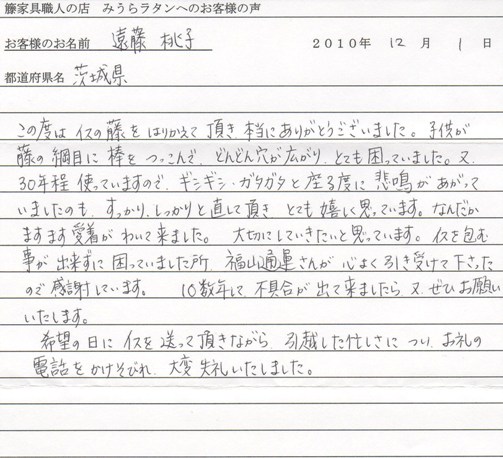 籐家具職人の店 みうらラタンへのお客様の声
お客様のお名前 遠藤 桃子 2010年 12月 1日
都道府県名 茨城県
この度は イスの藤を はりかえて 頂き 本当にありがとうございました。子供が
藤の網目に 棒を つっこんで、どんどん穴が広がり、とても 困っていました。又、
30年程 使っていますので、ギシギシ・ガタガタと座る度に 悲鳴が あがって
いましたのも、すっかり、しっかりと直して頂き とても 嬉しく思っています。なんだか
ますます 愛着が わいて来ました。 大切にしていきたいと思っています。イスを包む
事が 出来ずに 困っていました所、福山通運さんが 心よく引き受けて下さった
ので 感謝しています。 10数年して 不具合が 出て来ましたら、又、ぜひお願い
いたします。
希望の日に イスを 送って頂きながら、引越した忙しさに つい、お礼の
電話をかけそびれ、大変 失礼いたしました。